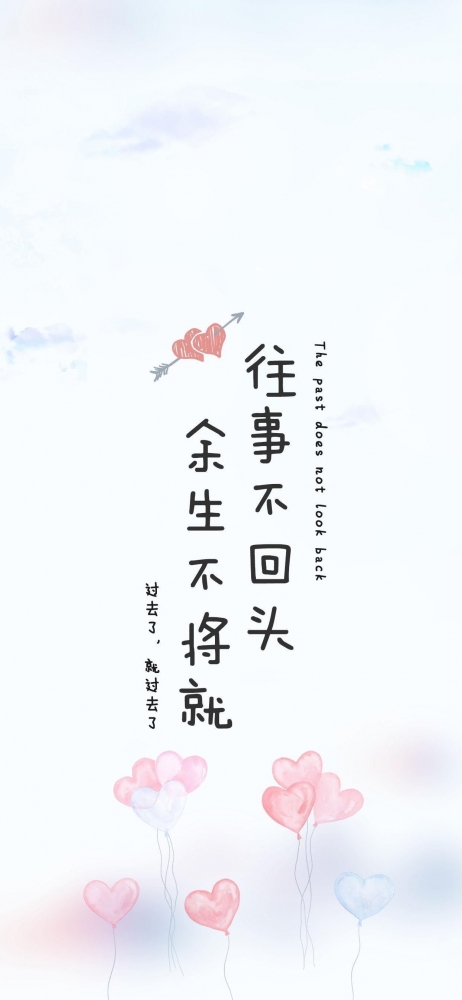 The past does not look back
往事不回头
余生不将就
过去了，就过去了